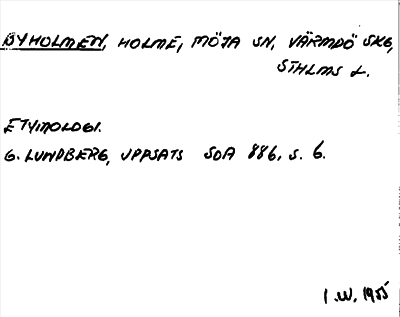 BYHOLMEN, HOLME, MÖJA SN, VÄRMDÖ SKG,
STHLMS L.
ETYMOLOGI.
G. LUNDBERG, UPPSATS SOA 886, S. 6.
I.W. 1955